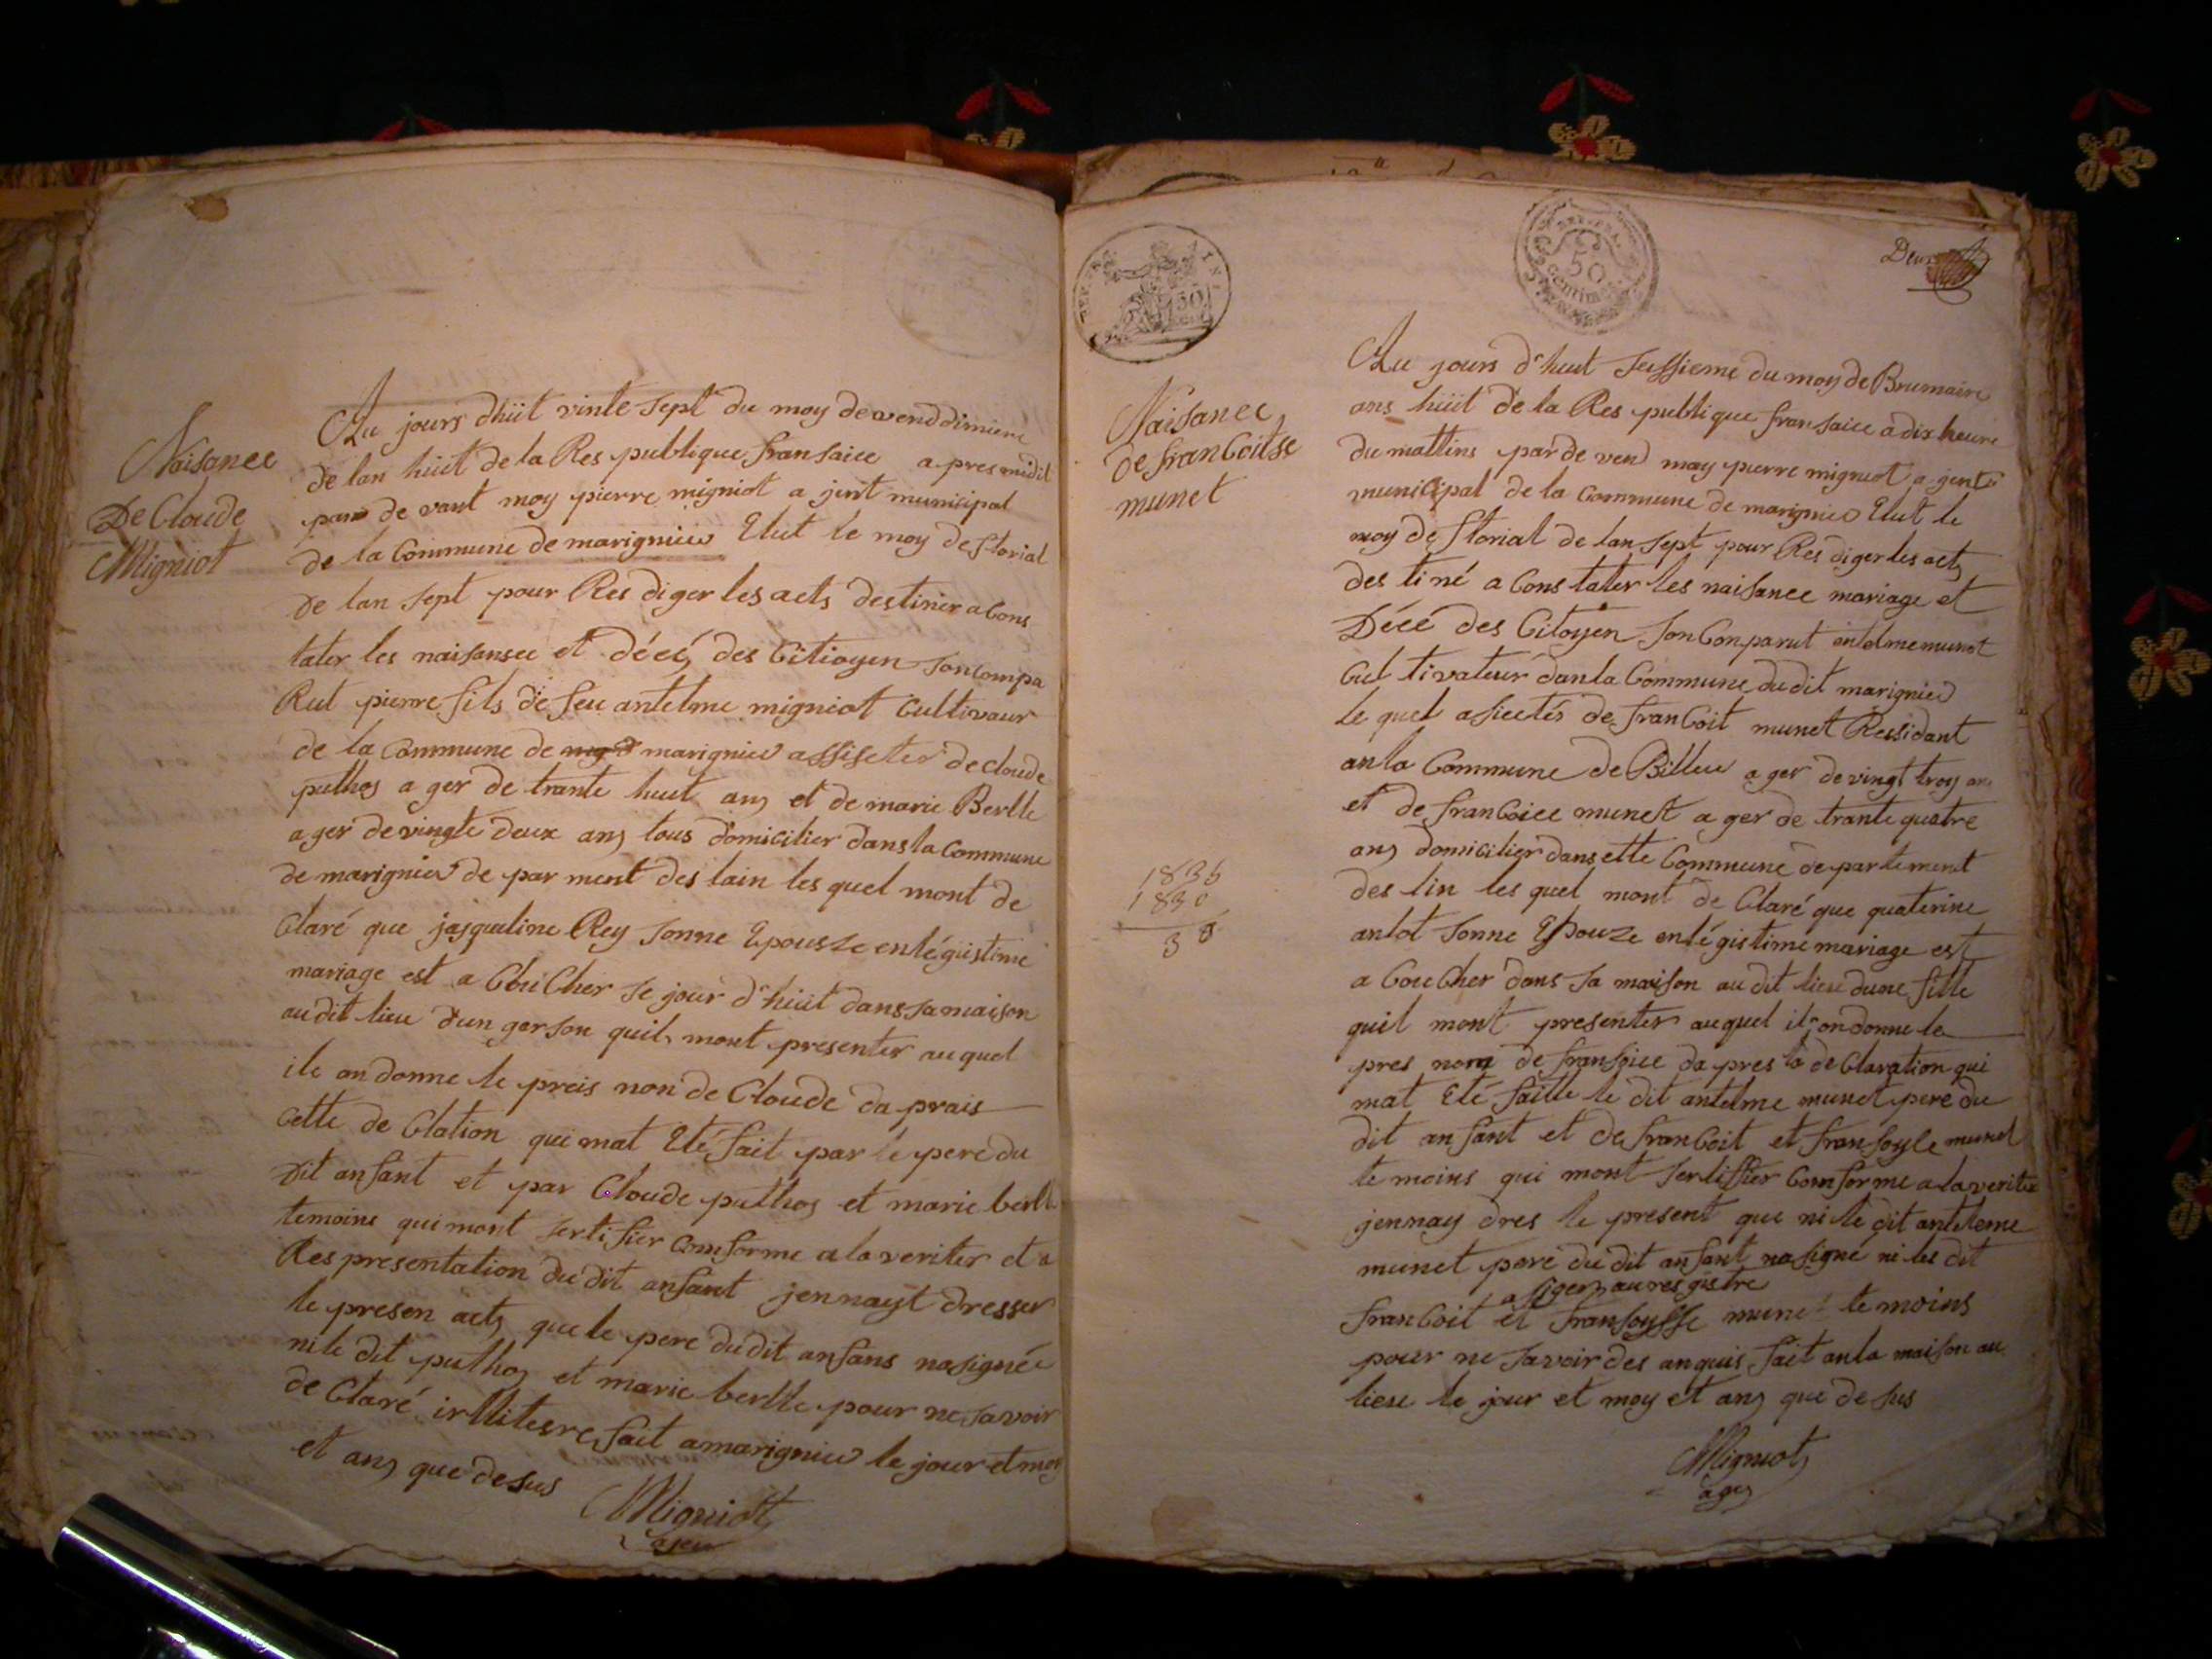 Naisanee
De Cloude
Migniot
Au jours dhüit vinte sept du moy de venddimiere
de lan hüit de la Res publique fransaice a pres midit
par de vant moy pierre migniot a jint municipal
de la Commune de marignieu Elut le moy de florial
de lan sept pour Res diger les acts destiner a Cons
tater les naisansee et décé, des Citioyen son Compa
Rut pierre fils de feu antelme migniot Cultivaur
de la Commune de marignieu assiseter de cloude
puthos a ger de trante huit ans et de marie Berlle
a ger de vingte deux ans tous domicilier dans la Commune
de marignieu de par ment des lain les quel mont de
Claré que jasqueline Rey sonne Epousze enlégistime
mariage est a CouCher se jour d'hüit dans sa maison
au dit lieu dun gerson quil mont presenter au quel
ile on donne le preis non de Cloude da prais
Cette de Clation qui mat Eté fait par le pere du
dit ansant et par Cloude puthos et marie berlle
temoine qui mont sertifier Comforme a la veriter et a
Res presentation du dit ansant jennayt dresser
le presen acts que le pere du dit ansans nasignée
ni le dit puthos et marie berlle pour ne savoir
de Claré irllitesre fait a marignieu le jour et moy
et ans que desus
Migniot
ajen
REP. FRA.
50
50
Centimes
Naisanee
de franCoitse
munet
1836
1830
Au jours d'huit seissieme du moy de Brumaire
ans hüit de la Res publique fransaice a dix heure
du mattins par de vend moy pierre migniot a gent
municipal de la Commune de marignieu Elut le
moy de florial de lan sept pour Res diger les acts
des tiné a Cons tater les naisanee mariage et
Décé des Citoyen son Conparut antelme munet
Cul tivateur dan la Commune du dit marignieu
le quel asiectés de franCoit munet Ressidant
an la Commune de Billieu a ger de vingt troy an
et de franCoice munet a ger de trante quatre
ans domicilier dans ette Commune de partement
des lin les quel mont de Claré que quaterine
antot sonne Epouze enlégistime mariage est
a CouCher dans sa maison au dit lieu dune fille
quil mont presenter au quel il on donne le
pres nom de fransoice da pres la de Claration qui
mat Eté faitte le dit antelme munet pere du
dit ansant et de franCoit et fransoyse munet
te moins qui mont sertiffier Comforme a la veriter
jennay dres le present que ni le dit anteleme
munet pere du dit ansant na signé ni les dit
a siger au res gistre
franCoit et fransoysse munet te moins
pour ne savoir des anquis fait an la maison au
lieu le jour et moy et ans que de sus
Migniot
agen